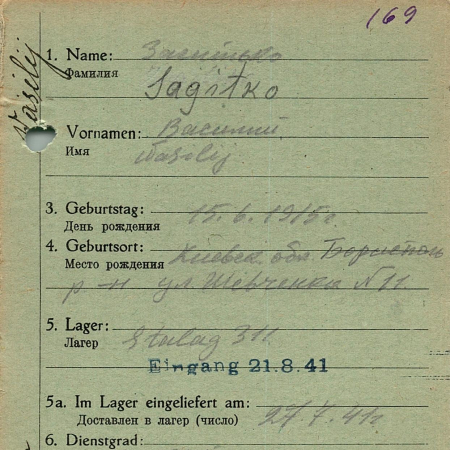 169
Wasilij
1. Name:
Фамилия
Sagitko
Vornamen: Василий
Имя Wasilij
3. Geburtstag: 15.6.1915г.
День рождения
4. Geburtsort: Киевск. обл. Борисполь
Место рождения
р-н ул. Шевченка N 11.
5. Lager: Stalag 311
Лагер
Eingang 21.8.41
5a. Im Lager eingeliefert am:
Доставлен в лагер (число) 41г.
6. Dienstgrad: